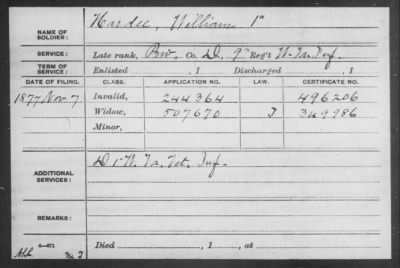 NAME OF SOLDIER: Hardee, William 1"
SERVICE: Late rank, Priv. Co. D, 9" Reg't W. Va. Inf.
TERM OF SERVICE: Enlisted , 1 Discharged , 1
DATE OF FILING. CLASS. APPLICATION NO. LAW. CERTIFICATE NO.
1877 Nov. 7 Invalid, 244364 496206
Widow, 507670 J 349986
Minor,
ADDITIONAL SERVICES: D 1" W. Va. Vet. Inf.
REMARKS:
Died , 1 , at